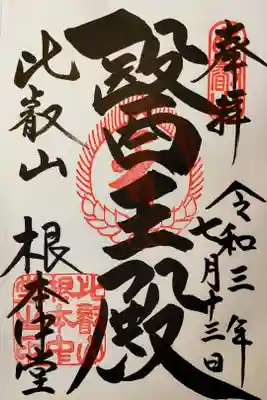 奉拝
令和三年
七月十三日
醫王殿
比叡山
根本中堂
比叡山
根本中
堂之印